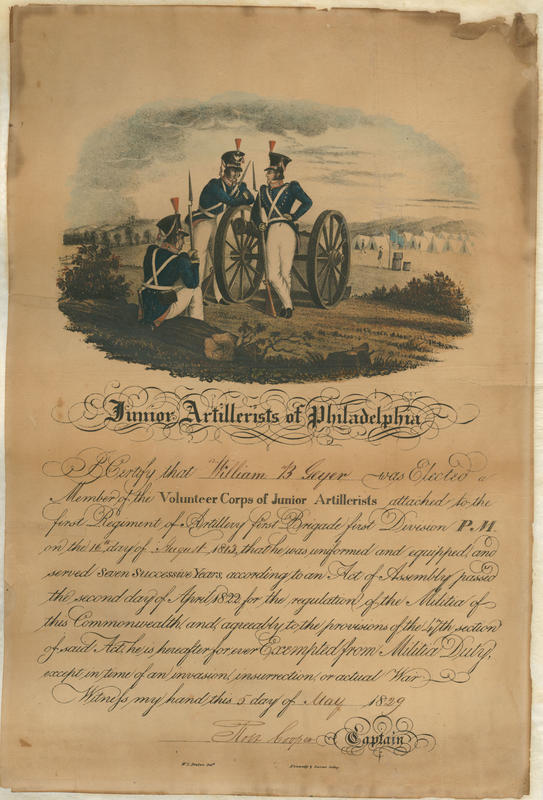 Junior Artillerists of Philadelphia
I Certify that William B Geyer was Elected a
Member of the Volunteer Corps of Junior Artillerists attached to the
first Regiment of Artillery first Brigade first Division P.M.
on the 16th day of August 1813, that he was uniformed and equipped, and
served Seven Successive Years, according to an Act of Assembly passed
the second day of April 1822, for the regulation of the Militia of
this Commonwealth, and, agreably to the provisions of the 47th section
of said Act, he is hereafter for ever Exempted from Militia Duty,
except in time of an invasion, insurrection, or actual War
Witness my hand this 5 day of May 1829
Cooper Captain
Kennedy & Lucas Lithy.